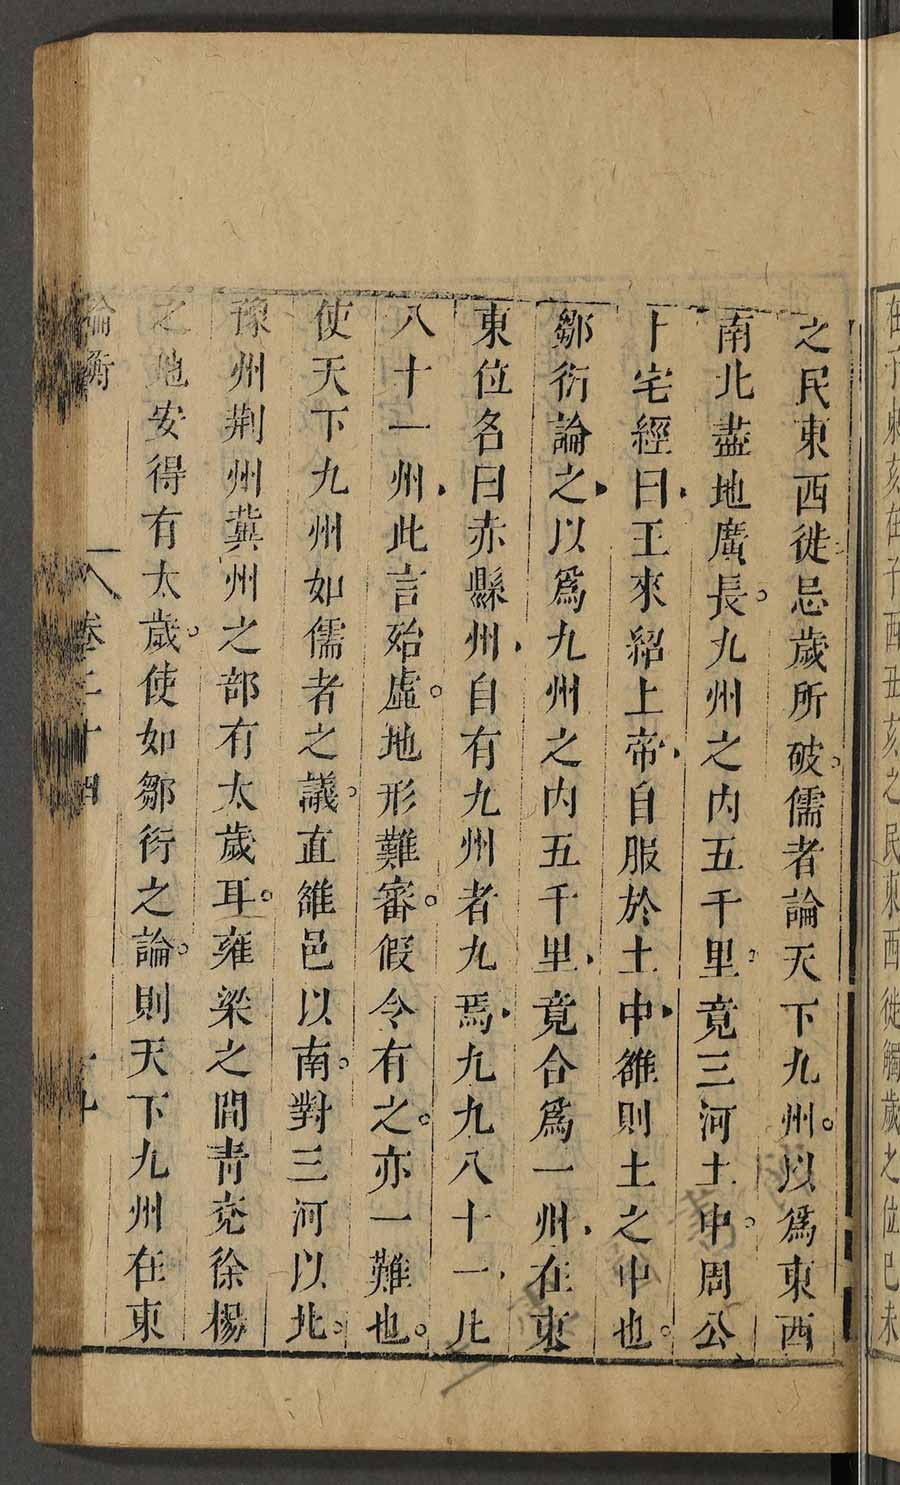 在子丑亥之民東西徙觸歲之位巳未
之民東西徙忌歲所破。儒者論天下九州。以爲東西
南北盡地廣長。九州之内五千里。竟三河土中。周公
卜宅經曰、王來紹上帝、自服於土中、雒則土之中也。
鄒衍論之、以爲九州之内五千里、竟合爲一州、在東
東位名曰赤縣州、自有九州者九焉、九九八十一、凡
八十一州、此言殆虛。地形難審。假令有之。亦一難也。
使天下九州如儒者之議。直雒邑以南。對三河以北。
豫州荆州冀州之部有太歲耳。雍梁之間青兗徐楊
之地安得有太歲。使如鄒衍之論。則天下九州在東
論衡 卷二十四 十九